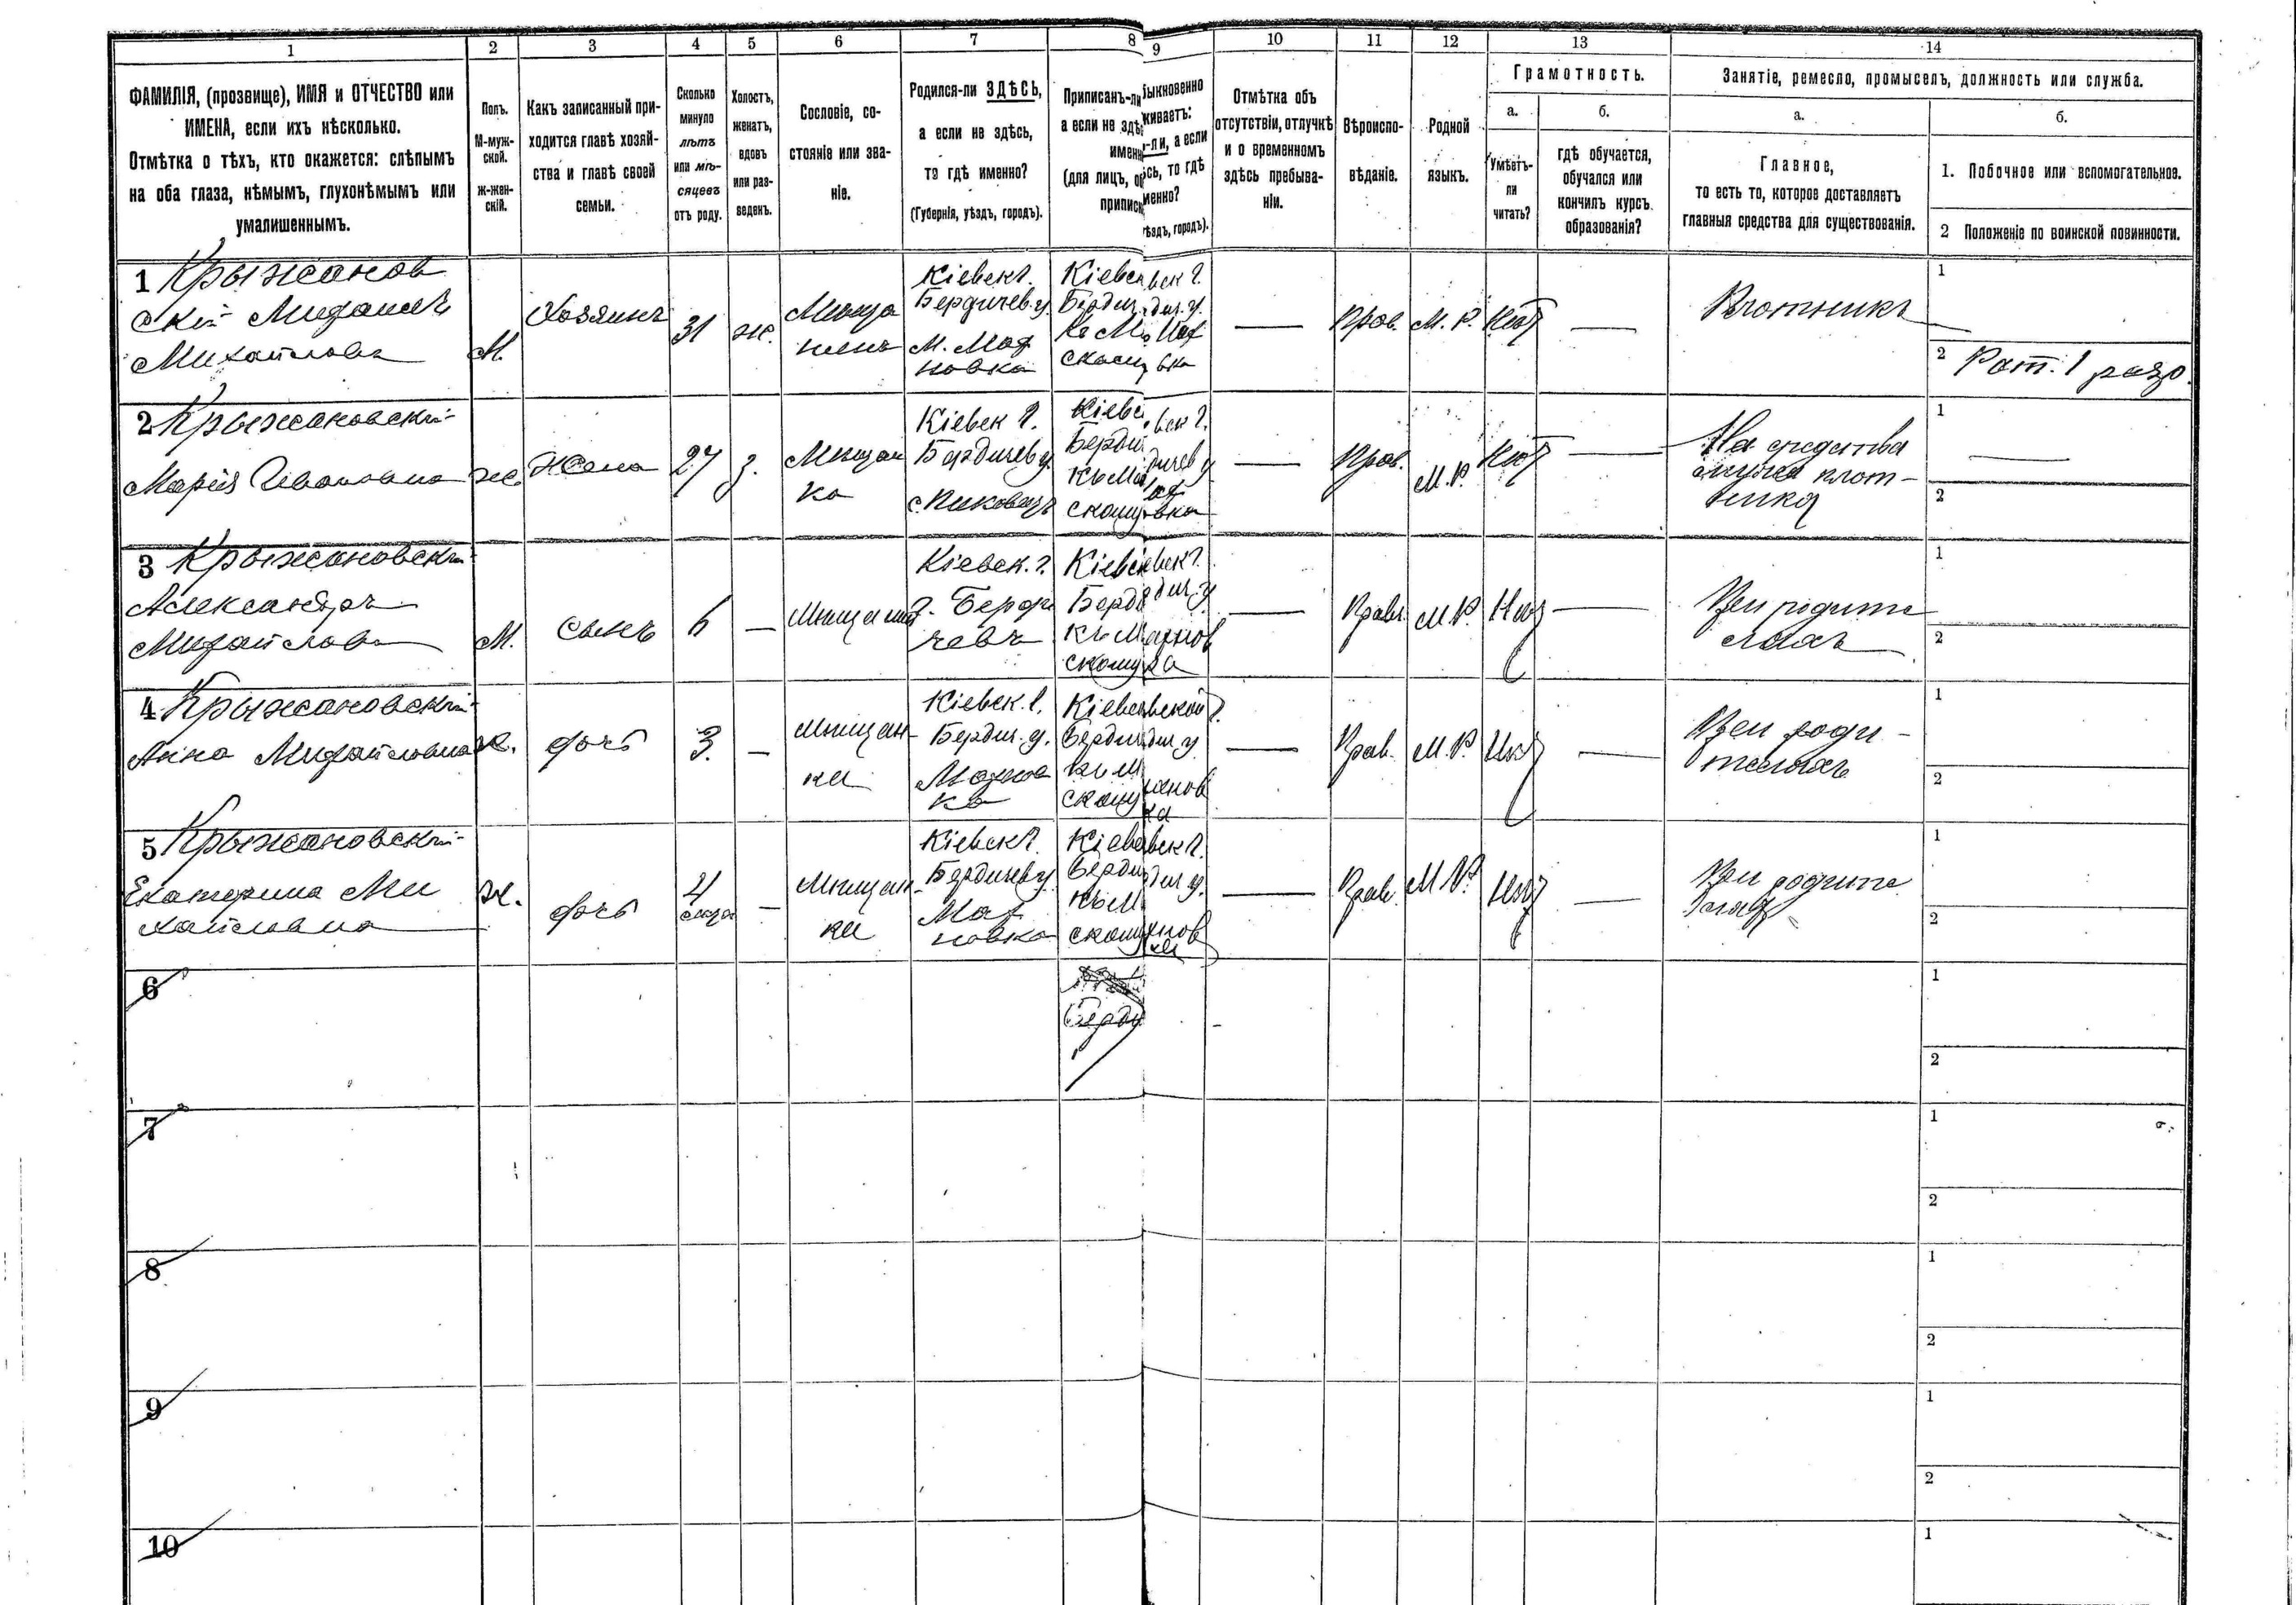 1 2 3 4 5 6 7 8 9 10 11 12 13 14
ФАМИЛІЯ, (прозвище), ИМЯ и ОТЧЕСТВО или
ИМЕНА, если ихъ нѣсколько.
Отмѣтка о тѣхъ, кто окажется: слѣпымъ
на оба глаза, нѣмымъ, глухонѣмымъ или
умалишеннымъ.
Полъ.
М-муж-
ской.
ж-жен-
скій.
Какъ записанный при-
ходится главѣ хозяй-
ства и главѣ своей
семьи.
Сколько
минуло
лѣтъ
или мѣ-
сяцевъ
отъ роду.
Холостъ,
женатъ,
вдовъ
или раз-
веденъ.
Сословіе, со-
стояніе или зва-
ніе.
Родился-ли ЗДѢСЬ,
а если не здѣсь,
то гдѣ именно?
(Губернія, уѣздъ, городъ).
Приписанъ-ли
а если не здѣ
именн
(для лицъ, о
приписк
ыкновенно
живаетъ:
-ли, а если
сь, то гдѣ
менно?
ѣздъ, городъ).
Отмѣтка объ
отсутствіи, отлучкѣ
и о временномъ
здѣсь пребыва-
ніи.
Вѣроиспо-
вѣданіе.
Родной
языкъ.
Грамотность.
а.
Умѣетъ-
ли
читать?
б.
гдѣ обучается,
обучался или
кончилъ курсъ
образованія?
Занятіе, ремесло, промыселъ, должность или служба.
а.
Главное,
то есть то, которое доставляетъ
главныя средства для существованія.
б.
1. Побочное или вспомогательное.
2 Положеніе по воинской повинности.
1 Крыжанов
скій Михаилъ
Михайловъ
М.
Хозяинъ
31
ж.
Мѣща
нинъ
Кіевск г.
Бердичев. у.
М. Мах
новка
Кіевс
Бердич
Къ М
скому
вск г.
дич. у.
Мах
вка
—
Прав.
М. Р.
Нѣт
—
Плотникъ
1
2 Рат. 1 разр.
2 Крыжановскій
Марія Ивановна
ж.
Жена
27
з.
Мѣщан
ка
Кіевск г.
Бердичев у.
с. Пиковецъ
Кіевс
Берди
Къ Ма
скому
вск г.
дичев у
ах
вка
—
Прав.
М. Р.
Нѣт
—
На средства
мужа плот-
ника
1 —
2
3 Крыжановскій
Александръ
Михайловъ
М.
Сынъ
6
—
Мѣщанин
Кіевск. г.
г. Берди
чевъ
Кіевс
Берди
къ М
скому
евск г.
дич. у
ахнов
ка
—
Прав.
М. Р.
Нѣт
—
При родите
ляхъ
1
2
4 Крыжановскій
Анна Михайловна
ж.
дочь
3.
—
Мѣщан
ка
Кіевск. г.
Бердич. у.
Махнов
ка
Кіевс
Берди
къ М
скому
вской г.
дич у
ахнов
ка
—
Прав.
М. Р.
Нѣт
—
При роди-
теляхъ
1
2
5 Крыжановскій
Екатерина Ми
хайловна
ж.
дочь
4
—
Мѣщан
ка
Кіевск г.
Бердичев у.
Мах
новка
Кіев
Берди
къ М
скому
вск г.
дич у.
хнов
ка
—
Прав.
М. Р.
Нѣт
—
При родите
ляхъ
1
2
6
Берди
1
2
7
1
2
8
1
2
9
1
2
10
1